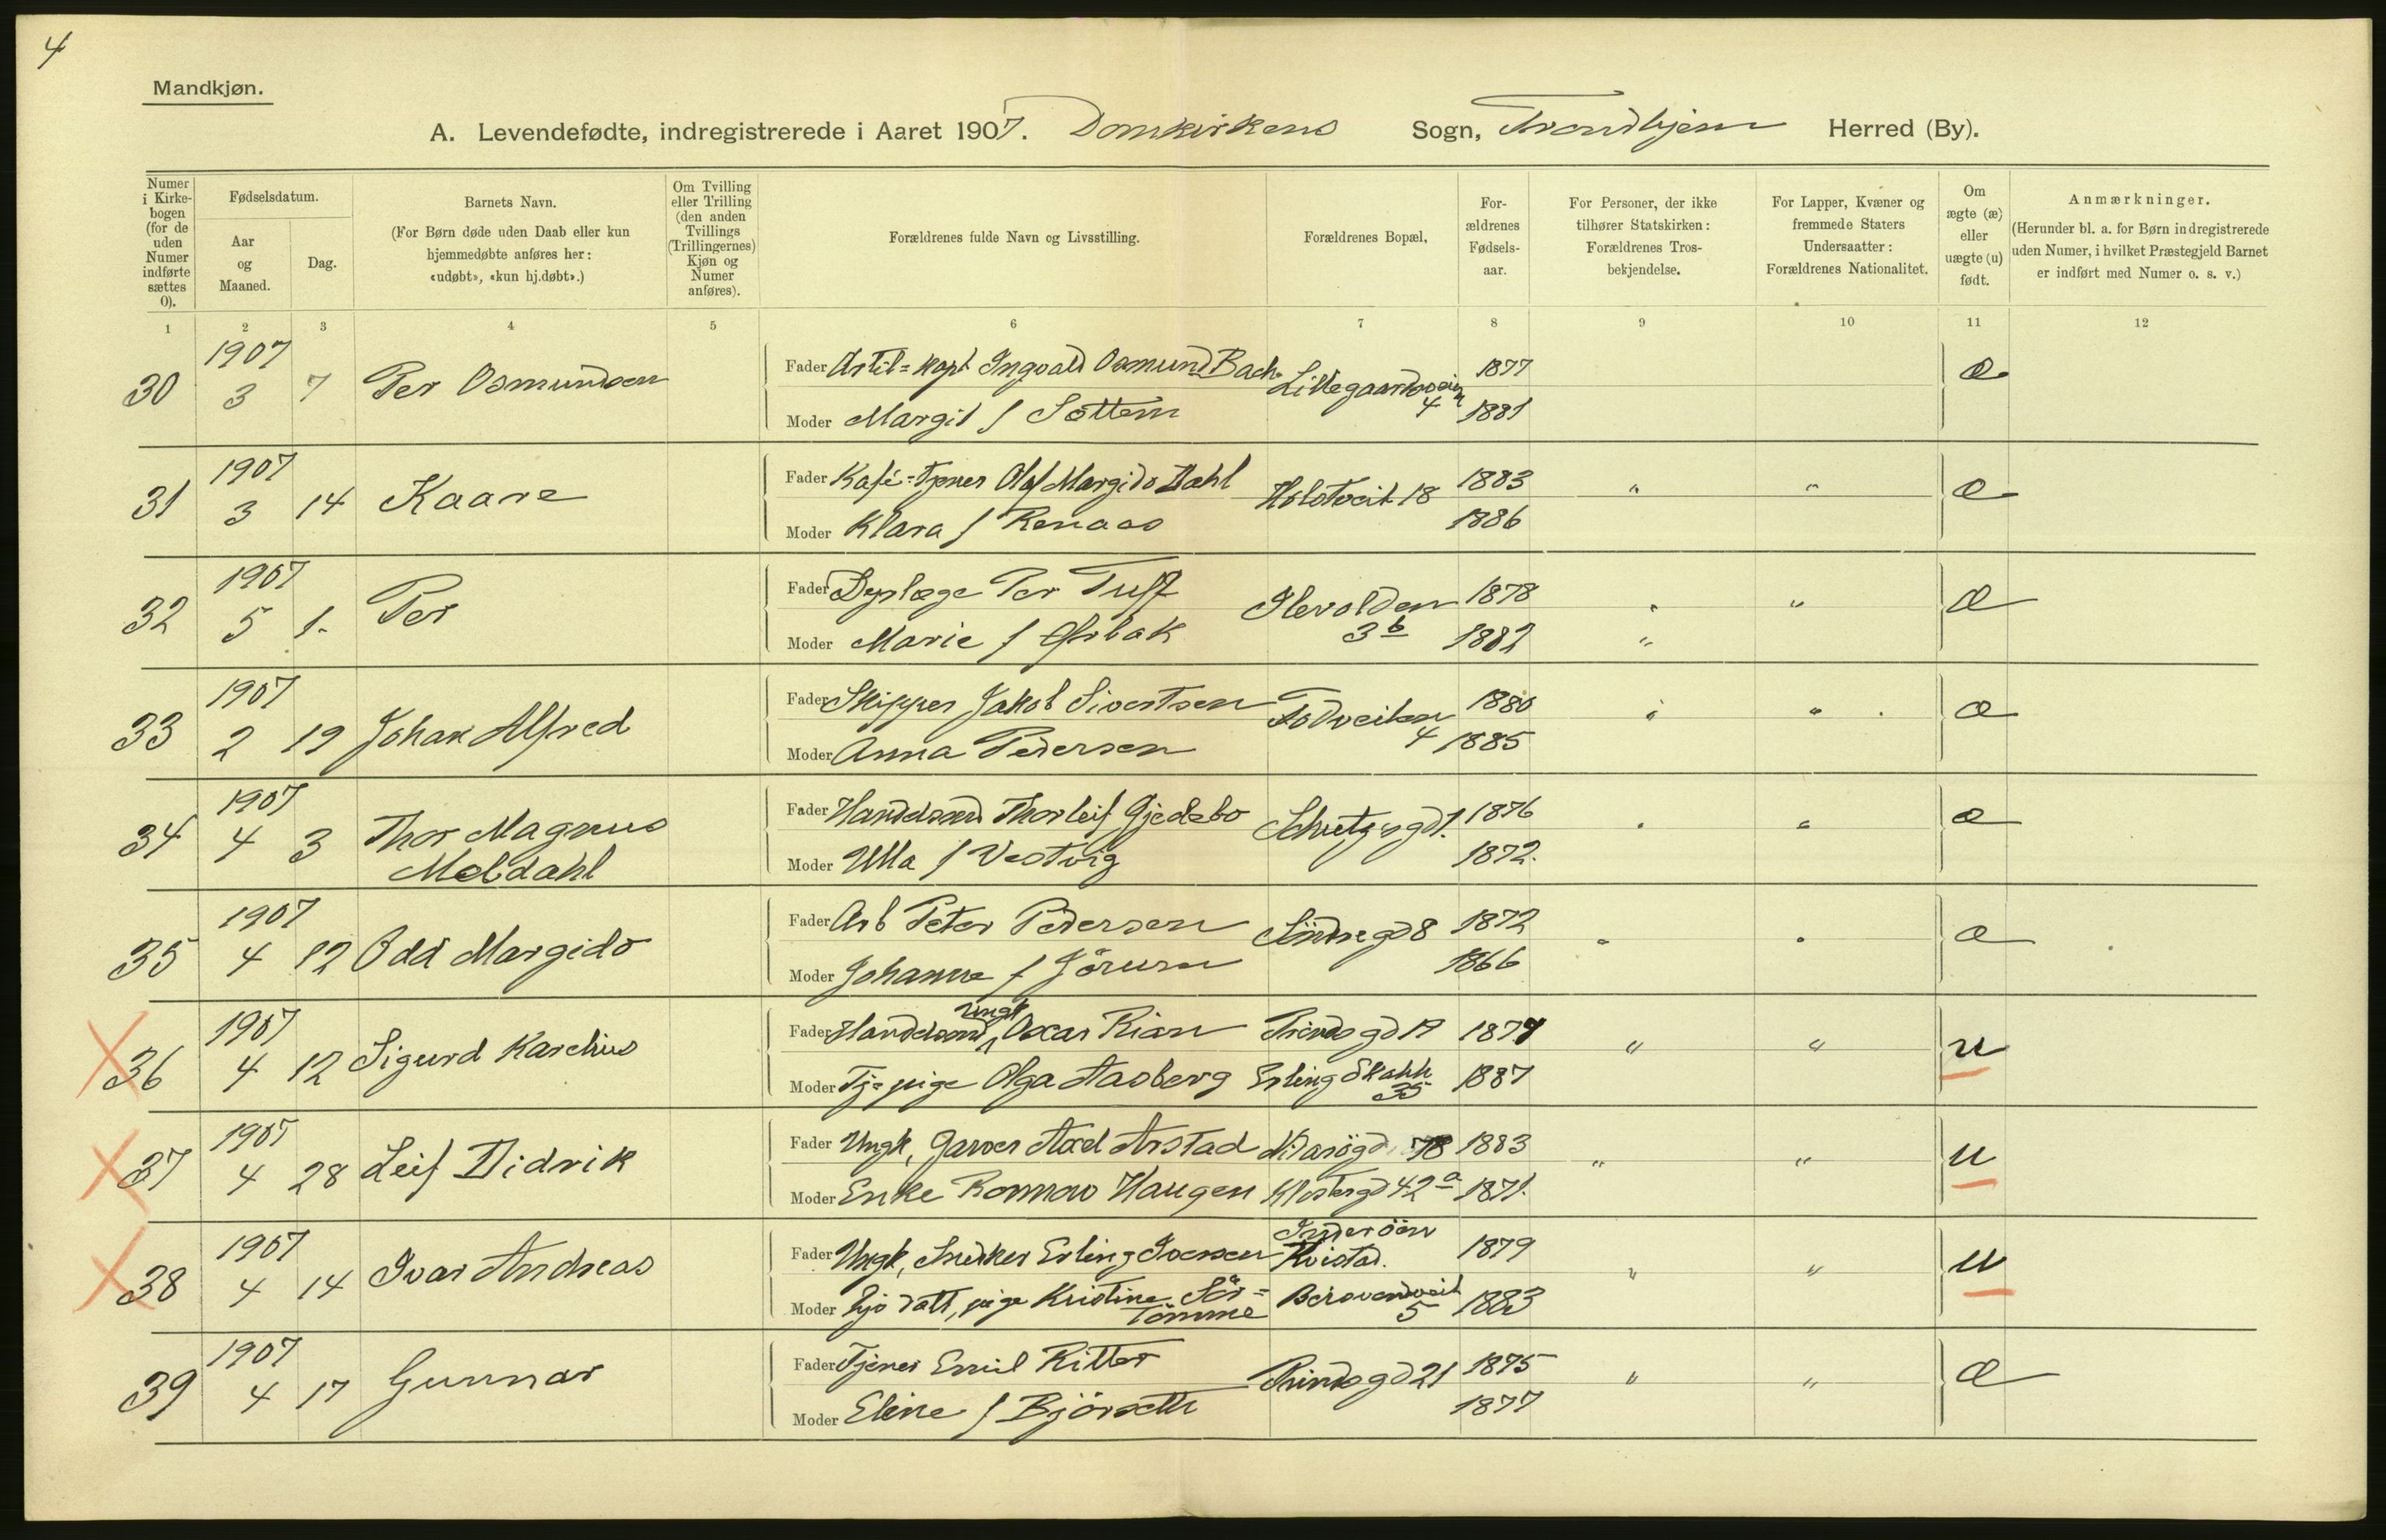 4
Mandkjøn.
A. Levendefødte, indregistrerede i Aaret 1907. Domkirkens Sogn, Trondhjem Herred (By).
Numer i Kirkebogen (for de uden Numer indførte sættes 0).
Fødselsdatum.
Aar og Maaned.
Dag.
Barnets Navn.
(For Børn døde uden Daab eller kun hjemmedøbte anføres her: «udøbt», «kun hj.døbt».)
Om Tvilling eller Trilling (den anden Tvillings (Trillingernes) Kjøn og Numer anføres).
Forældrenes fulde Navn og Livsstilling.
Forældrenes Bopæl,
Forældrenes Fødselsaar.
For Personer, der ikke tilhører Statskirken: Forældrenes Trosbekjendelse.
For Lapper, Kvæner og fremmede Staters Undersaatter: Forældrenes Nationalitet.
Om ægte (æ) eller uægte (u) født.
Anmærkninger.
(Herunder bl. a. for Børn indregistrerede uden Numer, i hvilket Præstegjeld Barnet er indført med Numer o. s. v.)
1 2 3 4 5 6 7 8 9 10 11 12
30 1907 3 7 Per Osmundsen
Fader Artil=kapt Ingvald Osmund Bach Lillegaardsvein 4 1877 æ
Moder Margit f Sottem 1881
31 1907 3 14 Kaare
Fader Kafé=tjener Olaf Margido Dahl Holstveit 18 1883 " " æ
Moder Klara f Renaas 1886
32 1907 5 1. Per
Fader Dyrlæge Per Tuff Ilevolden 3 b 1878 " " æ
Moder Marie f 1882 "
33 1907 2 19 Johan Alfred
Fader Skipper Jakob Sivertsen 4 1880 " " æ
Moder Anna Pedersen 1885
34 1907 4 3 Thor Magnus Moldahl
Fader Handelsm Thorleif Gjedebo 1. 1876 " " æ
Moder Ulla f Vestvig 1872.
35 1907 4 12 Odd Margido
Fader Arb Peter Pedersen Søndregd 8 1872 " " æ
Moder Johanna f Jörum 1866
36 1907 4 12 Sigurd Karelius
Fader Handelsm Ungk Oscar Rian Prinds gd 19 " " u
Moder Tj=pige Olga Aasberg Erling Skakk 35 1887
37 1907 4 28 Leif Didrik
Fader Ungk, Garver Axel Arstad 78 1883 " " u
Moder Enke Haugen Klostergd 42 a 1871.
38 1907 4 14 Ivar Andreas
Fader Ungk, Snedker Erling Iversen Inderöen Kvistad. 1879 " " u
Moder datt, pige Kristine Sör=tömme 5 1883
39 1907 4 17 Gunnar
Fader Tjener Emil Ritter Prinds gd 21 1875 " " æ
Moder Eline f Björseth 1877